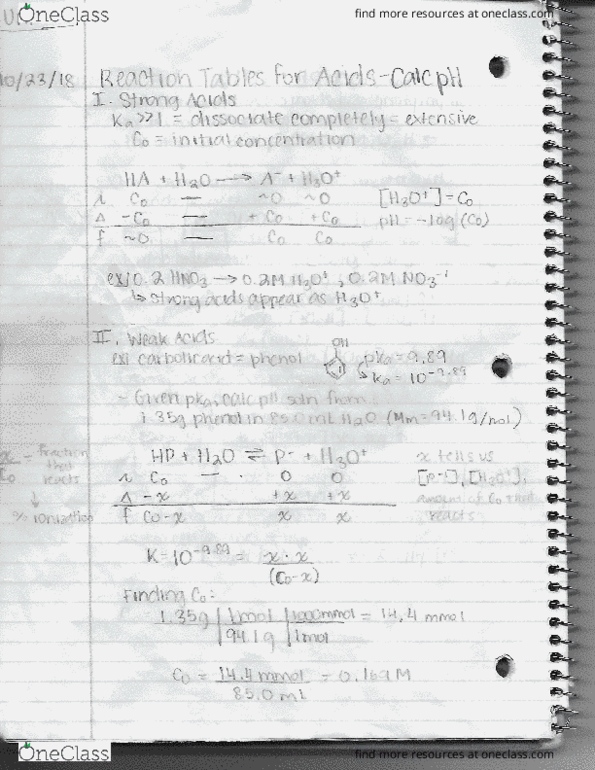 OneClass
find more resources at oneclass.com
10/23/18 Reaction Tables for Acids - Calc pH
I. Strong Acids
Ka >> 1 = dissociate completely = extensive
C0 = initial concentration
HA + H2O → A- + H3O+
i C0 — ~0 ~0 [H3O+] = C0
Δ -C0 — +C0 +C0 pH = -log (C0)
f ~0 — C0 C0
ex) 0.2 HNO3 → 0.2M H3O+, 0.2M NO3-1
↳ strong acids appear as H3O+
II. Weak Acids
OH
ex) carbolic acid = phenol pKa = 9.89
↳ Ka = 10-9.89
- Given pKa, calc pH soln from
1.35g phenol in 85.0 mL H2O (Mm = 94.1g/mol)
x/C0 = fraction that reacts
↓
% ionization
HP + H2O ⇌ P- + H3O+ x tells us
i C0 — 0 0 [P-], [H3O+],
Δ -x +x +x amount of C0 that
f C0-x x x reacts
K = 10-9.89 = x·x
(C0-x)
Finding C0:
1.35g | 1mol | 1000mmol = 14.4 mmol
94.1g | 1mol
C0 = 14.4 mmol = 0.169 M
85.0 mL
OneClass
find more resources at oneclass.com